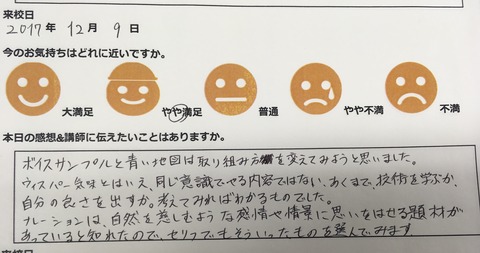 来校日
2017年 12月 9日
今のお気持ちはどれに近いですか。
大満足 やや満足 普通 やや不満 不満
本日の感想&講師に伝えたいことはありますか。
ボイスサンプルと青い地図は取り組み方を変えてみようと思いました。
ウィスパー気味とはいえ、同じ意識でやる内容ではない、あくまで、技術を学ぶか、
自分の色さを出すか。考えてみればわかるものでした。
ナレーションは、自然を慈しむような感情や情景に思いをはせる題材が
あっていると知れたので、セリフでもそういったものを選んでみます